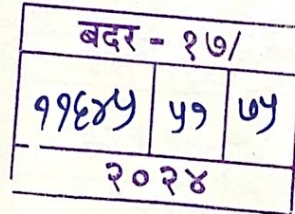 बदर - १७/
११६४५ ५१ ७५
२०२४